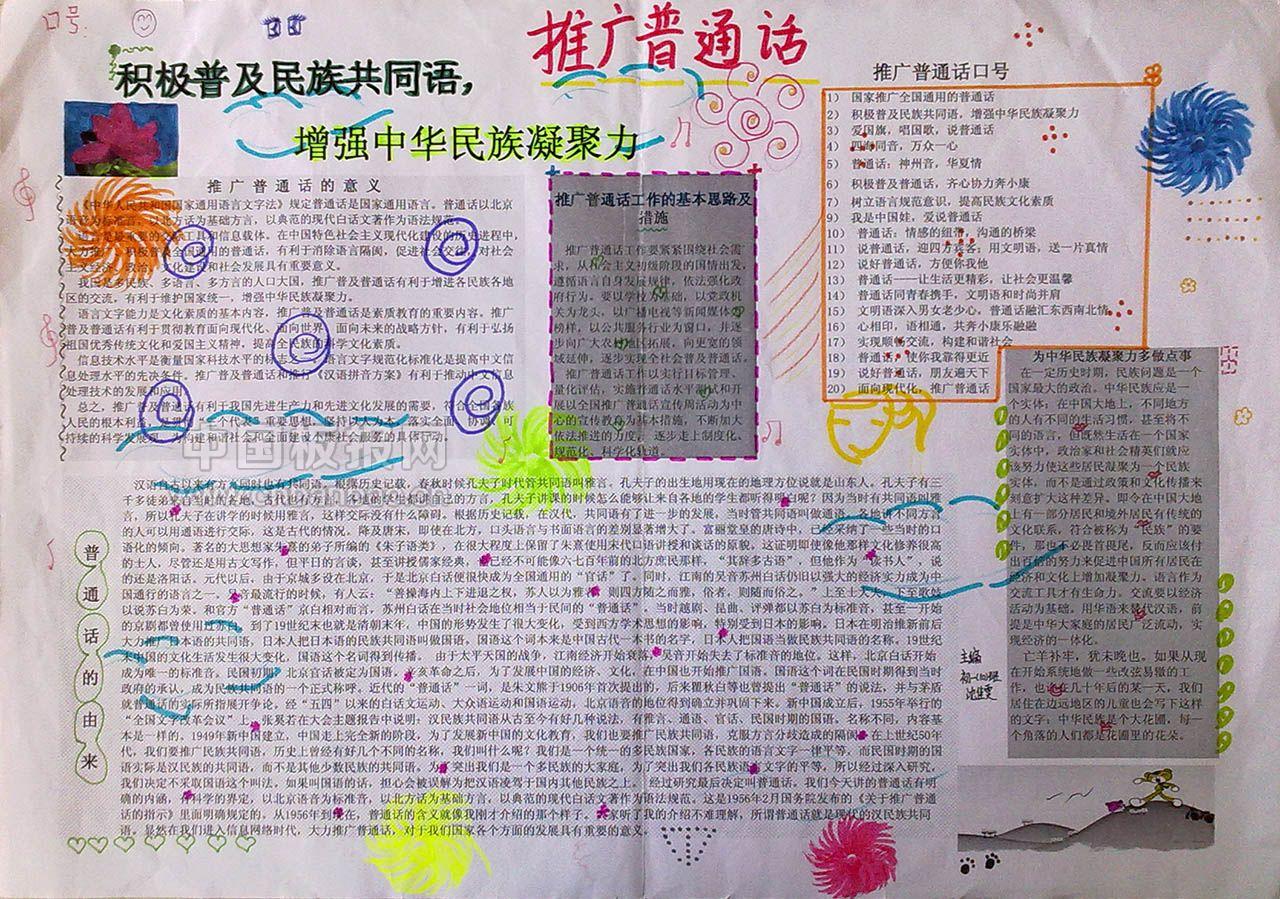 口号
推广普通话
积极普及民族共同语，
增强中华民族凝聚力
推广普通话的意义
《中华人民共和国国家通用语言文字法》规定普通话是国家通用语言。普通话以北京
语音为标准音，以北方话为基础方言，以典范的现代白话文著作为语法规范。
最重要的交际工具和信息载体。在中国特色社会主义现代化建设的历史进程中，
大力推广、积极普及全国通用的普通话，有利于消除语言隔阂，促进社会交往，对社会
主义经济、政治、文化建设和社会发展具有重要意义。
我国是多民族、多语言、多方言的人口大国，推广普及普通话有利于增进各民族各地
区的交流，有利于维护国家统一，增强中华民族凝聚力。
语言文字能力是文化素质的基本内容，推广普及普通话是素质教育的重要内容。推广
普及普通话有利于贯彻教育面向现代化、面向世界、面向未来的战略方针，有利于弘扬
祖国优秀传统文化和爱国主义精神，提高全民族的科学文化素质。
信息技术水平是衡量国家科技水平的标志之一。语言文字规范化标准化是提高中文信
息处理水平的先决条件。推广普及普通话和推行《汉语拼音方案》有利于推动中文信息
处理技术的发展和应用。
总之，推广普及普通话有利于我国先进生产力和先进文化发展的需要，符合全国各族
人民的根本利益，
持续的科学发展观，为构建和谐社会和全面建设小康社会服务的具体行动。
推广普通话工作的基本思路及
措施
推广普通话工作要紧紧围绕社会需
求，从社会主义初级阶段的国情出发，
遵循语言自身发展规律，依法强化政
府行为。要以学校为基础，以党政机
关为龙头，以广播电视等新闻媒体为
榜样，以公共服务行业为窗口，并逐
步向广大农村地区拓展，向更宽的领
域延伸，逐步实现全社会普及普通话。
推广普通话工作以实行目标管理、
量化评估，实施普通话水平测试和开
展以全国推广普通话宣传周活动为中
心的宣传教育为基本措施，不断加大
依法推进的力度，逐步走上制度化、
规范化、科学化轨道。
推广普通话口号
1） 国家推广全国通用的普通话
2） 积极普及民族共同语，增强中华民族凝聚力
3） 爱国旗，唱国歌，说普通话
4） 四海同音，万众一心
5） 普通话：神州音，华夏情
6） 积极普及普通话，齐心协力奔小康
7） 树立语言规范意识，提高民族文化素质
9） 我是中国娃，爱说普通话
10） 普通话：情感的纽带，沟通的桥梁
11） 说普通话，迎四方宾客；用文明语，送一片真情
12） 说好普通话，方便你我他
13） 普通话——让生活更精彩，让社会更温馨
14） 普通话同青春携手，文明语和时尚并肩
15） 文明语深入男女老少心，普通话融汇东西南北情
16） 心相印，语相通，共奔小康乐融融
17） 实现顺畅交流，构建和谐社会
18） 普通话，使你我靠得更近
19） 说好普通话，朋友遍天下
20） 面向现代化，推广普通话
为中华民族凝聚力多做点事
在一定历史时期，民族问题是一个
国家最大的政治。中华民族应是一
个实体，在中国大地上，不同地方
的人有不同的生活习惯，甚至将不
同的语言，但既然生活在一个国家
实体中，政治家和社会精英们就应
该努力使这些居民凝聚为一个民族
实体，而不是通过政策和文化传播来
刻意扩大这种差异。即今在中国大地
上有一部分居民和境外居民有传统的
文化联系，符合被称为“民族”的要
件，那也不必畏首畏尾，反而应该付
出百倍的努力来促进中国所有居民在
经济和文化上增加凝聚力。语言作为
交流工具才有生命力。交流要以经济
活动为基础。用华语来替代汉语，前
提是中华大家庭的居民广泛流动，实
现经济的一体化。
亡羊补牢，犹未晚也。如果从现
在开始系统地做一些改弦易辙的工
作，也许在几十年后的某一天，我们
居住在边远地区的儿童也会写下这样
的文字：中华民族是个大花圃，每一
个角落的人们都是花圃里的花朵。
普通话的由来
汉语自古以来有方言同时也有共同语。根据历史记载，春秋时候孔夫子时代管共同语叫雅言。孔夫子的出生地用现在的地理方位说就是山东人。孔夫子有三
言，所以孔夫子在讲学的时候用雅言，这样交际没有什么障碍。根据历史记载，在汉代，共同语有了进一步的发展，当时管共同语叫做通语。各地讲不同方言
的人可以用通语进行交际，这是古代的情况。降及唐宋，即使在北方，口头语言与书面语言的差别显著增大了。富丽堂皇的唐诗中，已经采纳了一些当时的口
语化的倾向。著名的大思想家朱熹的弟子所编的《朱子语类》，在很大程度上保留了朱熹使用宋代口语讲授和谈话的原貌。这证明即使像他那样文化修养很高
的士人，尽管还是用古文写作，但平日的言谈，甚至讲授儒家经典，他已经不可能像六七百年前的北方庶民那样，“其辞多古语”，但他作为“读书人”，说
的还是洛阳话。元代以后，由于京城多设在北京，于是北京白话便很快成为全国通用的“官话”了。同时，江南的吴音苏州白话仍旧以强大的经济实力成为中
国通行的语言之一。吴音最流行的时候，有人云：“善操海内上下进退之权，苏人以为雅者，则四方随之而雅，俗者，则随而俗之。”上至士大夫，下至歌妓
以说苏白为荣。和官方“普通话”京白相对而言，苏州白话在当时社会地位相当于民间的“普通话”，当时越剧、昆曲、评弹都以苏白为标准音，甚至一开始
的京剧都曾使用过苏白。到了19世纪末也就是清朝末年，中国的形势发生了很大变化，受到西方学术思想的影响，特别受到日本的影响。日本在明治维新前后
大力推广日本语的共同语，日本人把日本语的民族共同语叫做国语。国语这个词本来是中国古代一本书的名字，日本人把国语当做民族共同语的名称。19世纪
末中国的文化生活发生很大变化，国语这个名词得到传播。 由于太平天国的战争，江南经济开始衰落，吴音开始失去了标准音的地位。这样，北京白话开始
成为唯一的标准音。民国初期，北京官话被定为国语。辛亥革命之后，为了发展中国的经济、文化，在中国也开始推广国语。国语这个词在民国时期得到当时
政府的承认，成为民族共同语的一个正式称呼。近代的“普通话”一词，是朱文熊于1906年首次提出的，后来瞿秋白等也曾提出“普通话”的说法，并与茅盾
就普通话的实际所指展开争论。经“五四”以来的白话文运动、大众语运动和国语运动，北京语音的地位得到确立并巩固下来。新中国成立后，1955年举行的
“全国文字改革会议”上，张奚若在大会主题报告中说明：汉民族共同语从古至今有好几种说法，有雅言、通语、官话、民国时期的国语。名称不同，内容基
本是一样的。1949年新中国建立，中国走上完全新的阶段，为了发展新中国的文化教育，我们也要推广民族共同语，克服方言分歧造成的隔阂。在上世纪50年
代，我们要推广民族共同语，历史上曾经有好几个不同的名称，我们叫什么呢？我们是一个统一的多民族国家，各民族的语言文字一律平等。而民国时期的国
语实际是汉民族的共同语，而不是其他少数民族的共同语。为了突出我们是一个多民族的大家庭，为了突出我们各民族语言文字的平等，所以经过深入研究，
我们决定不采取国语这个叫法。如果叫国语的话，担心会被误解为把汉语凌驾于国内其他民族之上。 经过研究最后决定叫普通话。我们今天讲的普通话有明
确的内涵，有科学的界定，以北京语音为标准音，以北方话为基础方言，以典范的现代白话文著作为语法规范。这是1956年2月国务院发布的《关于推广普通
话的指示》里面明确规定的。从1956年到现在，普通话的含义就像我刚才介绍的那个样子。大家听了我的介绍不难理解，所谓普通话就是现代的汉民族共同
语。显然在我们进入信息网络时代，大力推广普通话，对于我们国家各个方面的发展具有重要的意义。
主编
中国板报网